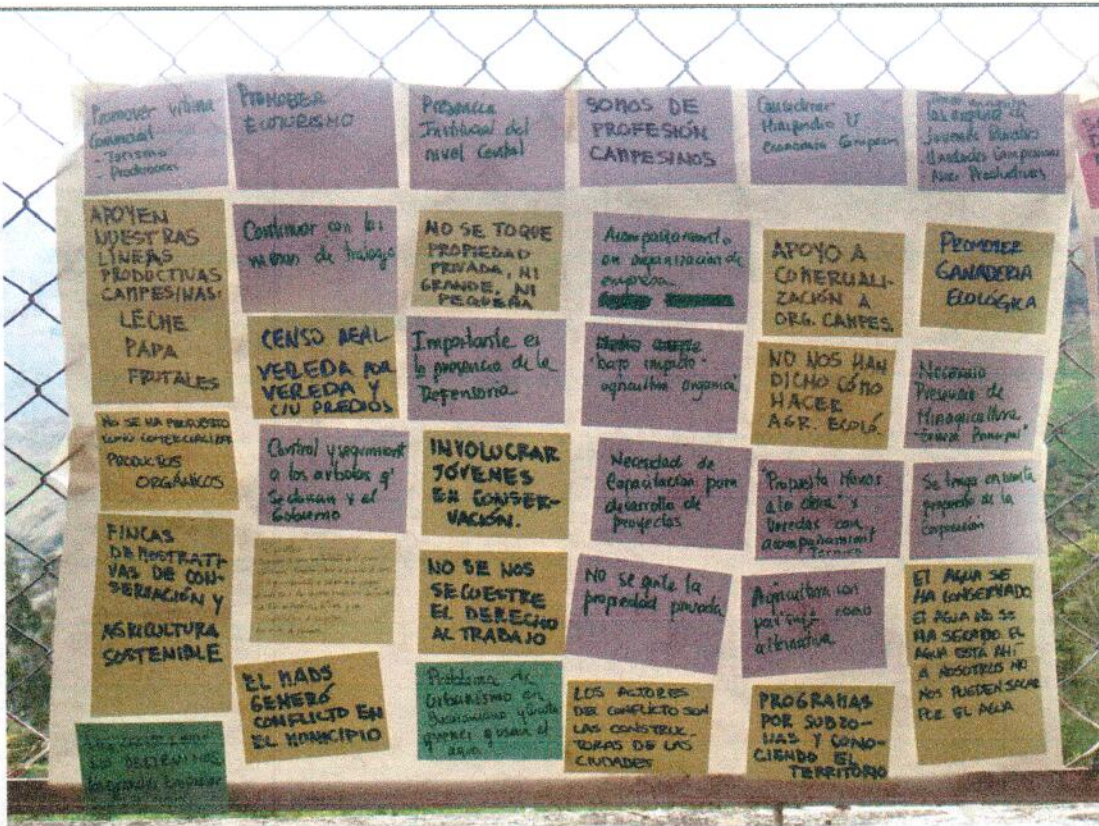 Promover vitrina
Comercial
- Turismo
- Productores
PROMOBER
ECOTURISMO
Presencia
Institucional del
nivel Central
SOMOS DE
PROFESIÓN
CAMPESINOS
Considerar
Minifundio y
economía Campesina
las
Jovenes Rurales
Unidades Campesinas
Productivas
APOYEN
NUESTRAS
LÍNEAS
PRODUCTIVAS
CAMPESINAS:
LECHE
PAPA
FRUTALES
Continuar con las
mesas de trabajo
NO SE TOQUE
PROPIEDAD
PRIVADA, NI
GRANDE, NI
PEQUEÑA
Acompañamiento
en organización de
empresa
APOYO A
COMERCIALI-
ZACIÓN A
ORG. CAMPES.
PROMOVER
GANADERIA
ECOLÓGICA
CENSO REAL
VEREDA POR
VEREDA Y
C/U PREDIOS
Importante es
la presencia de la
Defensoria
"bajo impacto"
agricultura organica"
NO NOS HAN
DICHO CÓMO
HACER
AGR. ECOLÓ.
Necesario
Presencia de
Minagricultura
NO SE HA PROPUESTO
COMO COMERCIALIZAR
PRODUCTOS
ORGÁNICOS
Control y seguimient
a los arboles q'
se donan x el
Gobierno
INVOLUCRAR
JÓVENES
EN CONSER-
VACIÓN.
Necesidad de
Capacitación para
desarrollo de
proyectos
"Propuesta Manos
a la obra" x
Veredas con
acompañamient
Tecnico
Se tenga en cuenta
propuesta de la
Corporación
FINCAS
DEMOSTRATI-
VAS DE CON-
SERVACIÓN Y
AGRICULTURA
SOSTENIBLE
NO SE NOS
SECUESTRE
EL DERECHO
AL TRABAJO
No se quite la
propiedad privada
Agricultura con
paisaje como
alternativa
El AGUA SE
HA CONSERVADO
El AGUA NO SE
HA SECADO EL
AGUA ESTÁ AHÍ
A NOSOTROS NO
NOS PUEDEN SACAR
POR EL AGUA
EL MADS
GENERÓ
CONFLICTO EN
EL MUNICIPIO
Problema de
Urbanismo en
Bucaramanga
quienes q usan el
agua
LOS ACTORES
DEL CONFLICTO SON
LAS CONSTRUC-
TORAS DE LAS
CIUDADES
PROGRAMAS
POR SUBZO-
NAS Y CONO-
CIENDO EL
TERRITORIO
NO DESTRUIMOS